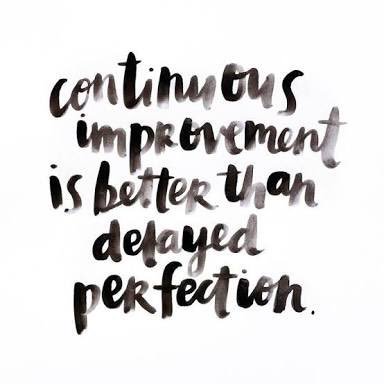 continuous
improvement
is better than
delayed
perfection.